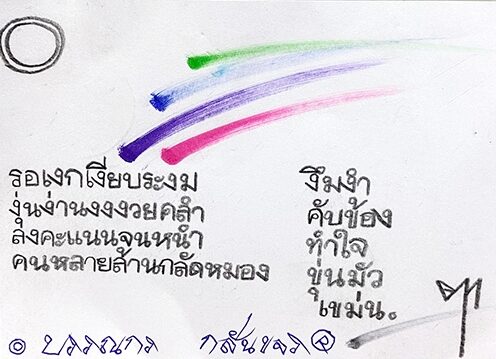 รอเงกเงียบระงม งึมงำ
งุ่นง่านงงงวยคลำ คับข้อง
ลงคะแนนจูนหนำ ทำใจ
คนหลายล้านกลัดหมอง ขุ่นมัว
เขม่น.
๏ บรรณกร กลั่นขจร ®